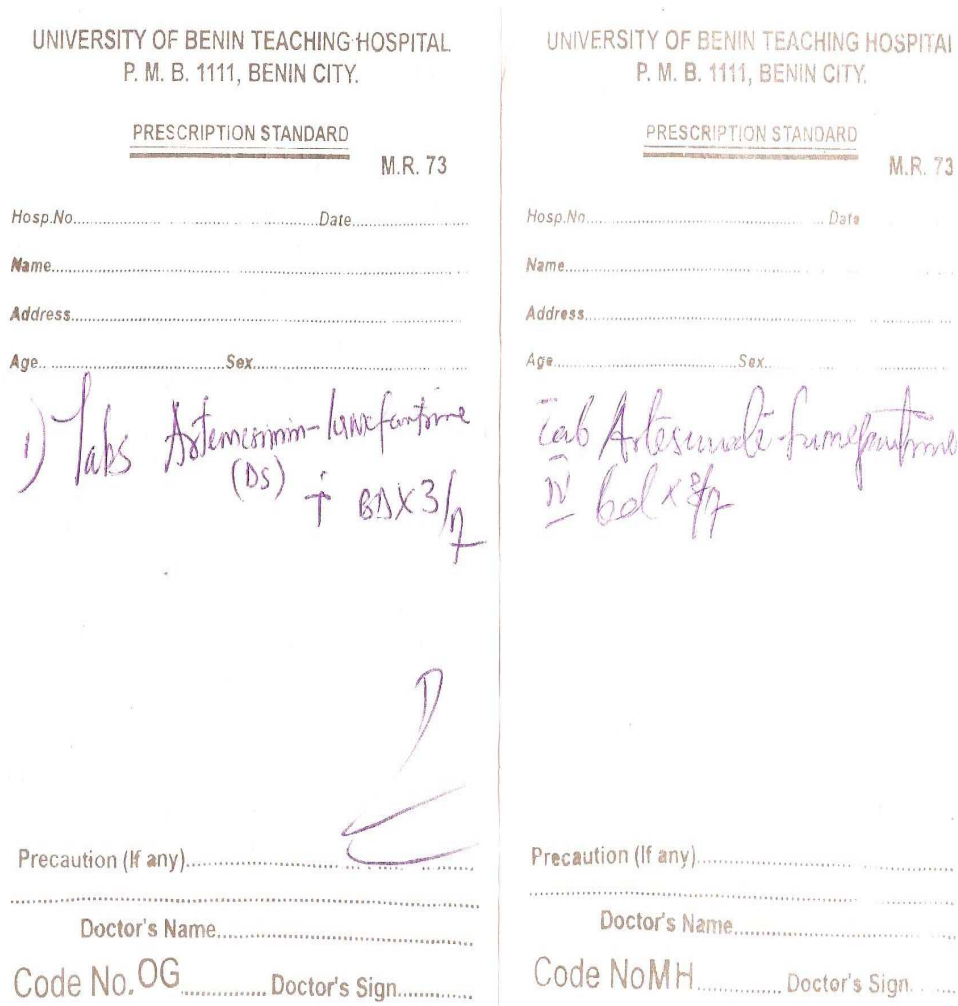 UNIVERSITY OF BENIN TEACHING HOSPITAL
P. M. B. 1111, BENIN CITY.
PRESCRIPTION STANDARD
M.R. 73
Hosp.No. Date
Name
Address
Age Sex
1) Tabs Artemesinin-lumefantrine
(DS) † BD X 3/7
Precaution (If any)
Doctor's Name
Code No. OG Doctor's Sign
UNIVERSITY OF BENIN TEACHING HOSPITAL
P. M. B. 1111, BENIN CITY.
PRESCRIPTION STANDARD
M.R. 73
Hosp.No. Date
Name
Address
Age Sex
Tab Artesunate-
IV bd x 3/7
Precaution (If any)
Doctor's Name
Code No MH Doctor's Sign.